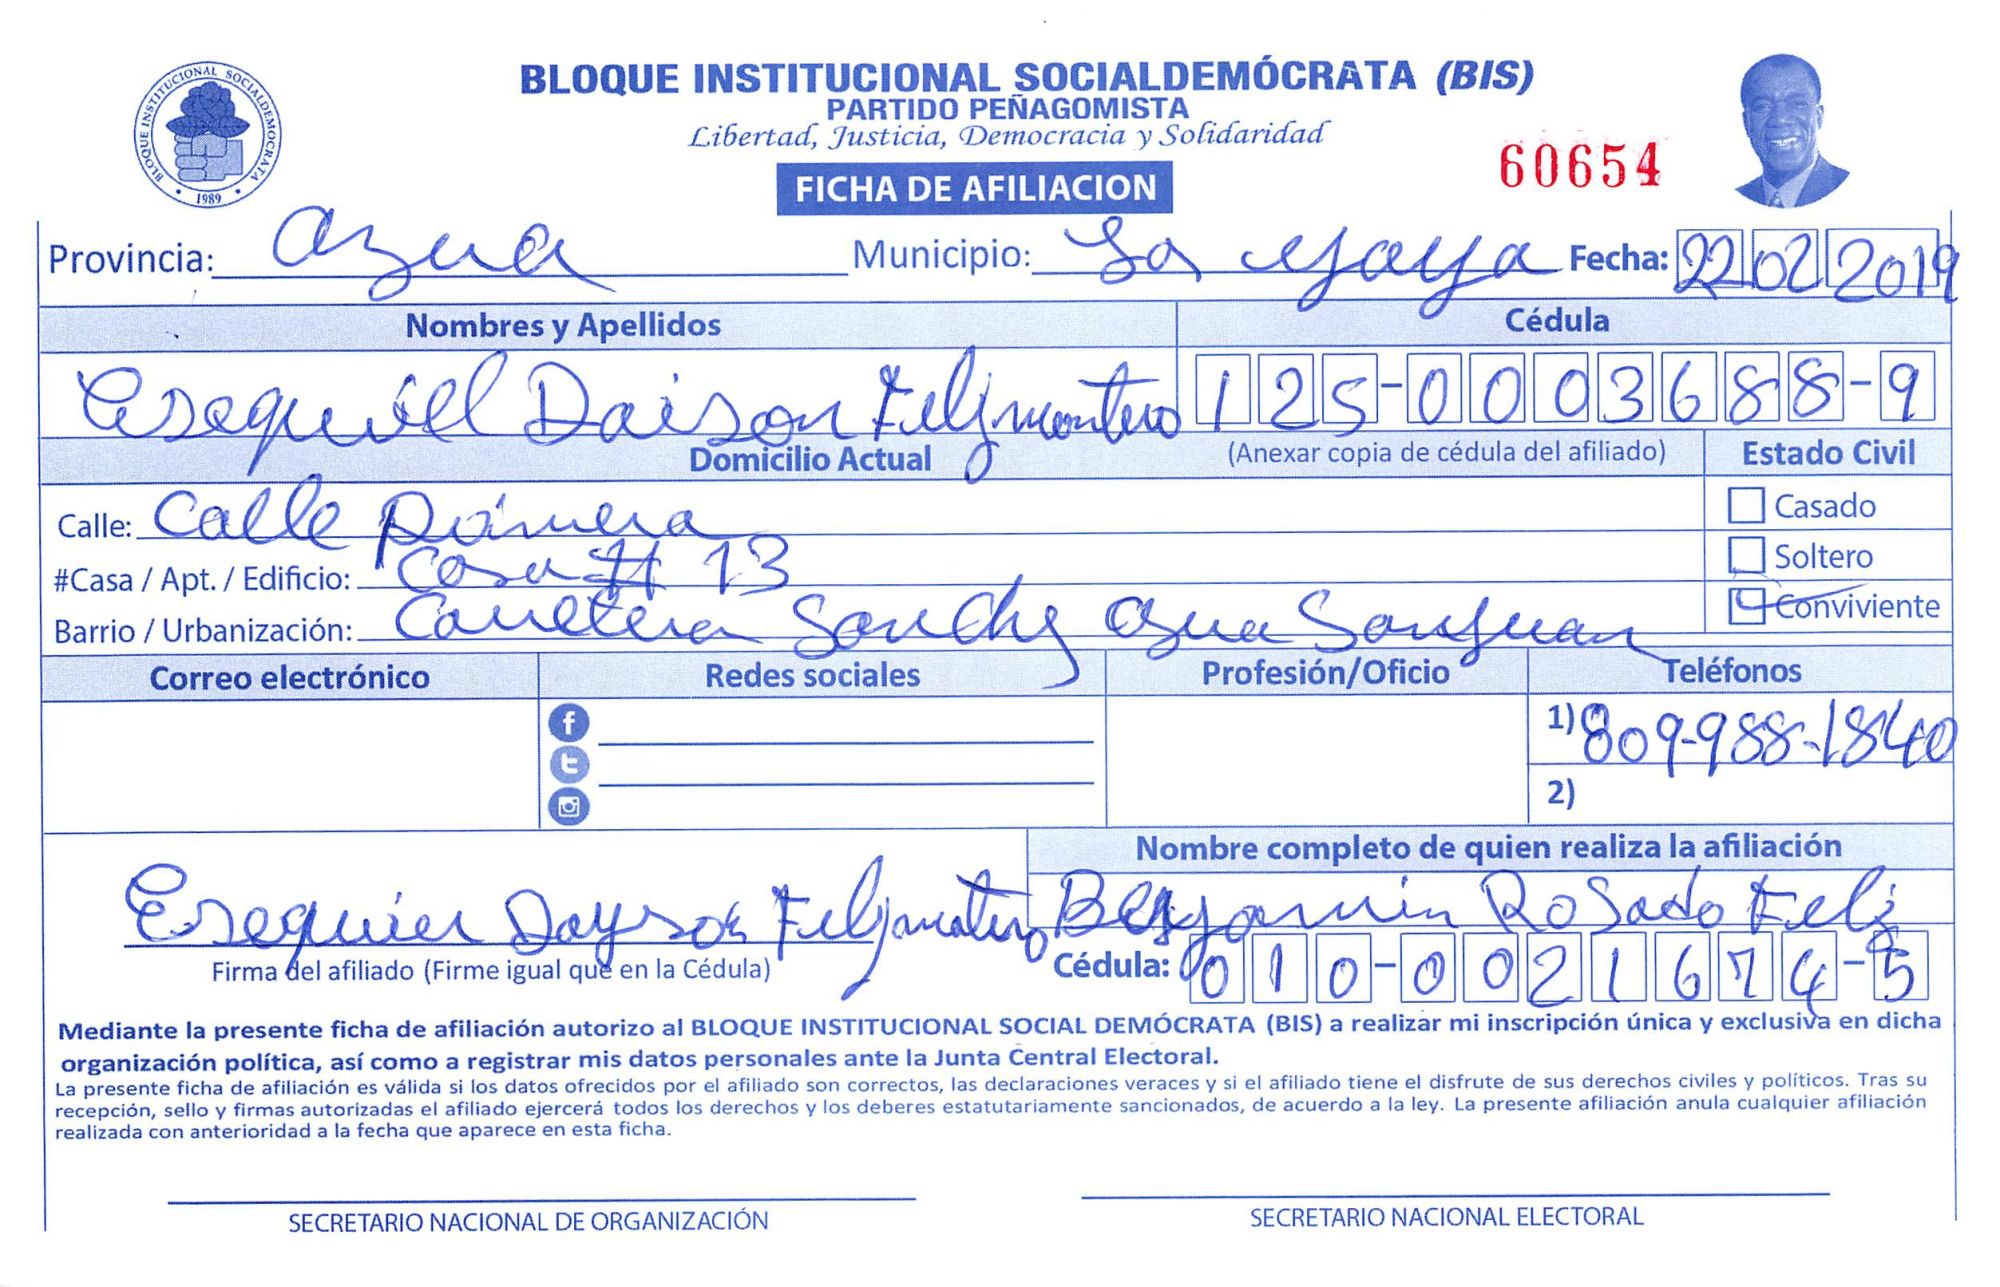 BLOQUE INSTITUCIONAL SOCIALDEMOCRATA
1989
BLOQUE INSTITUCIONAL SOCIALDEMÓCRATA (BIS)
PARTIDO PEÑAGOMISTA
Libertad, Justicia, Democracia y Solidaridad
60654
FICHA DE AFILIACION
Provincia: Azua Municipio: La yaya Fecha: 22 02 2019
Nombres y Apellidos Cédula
Esequiel Daison Feliz montero 125-0003688-9
Domicilio Actual (Anexar copia de cédula del afiliado) Estado Civil
Calle: Calle Primera Casado
#Casa / Apt. / Edificio: Casa # 13 Soltero
Barrio / Urbanización: Carretera Sanchez Azua San Juan Conviviente
Correo electrónico Redes sociales Profesión/Oficio Teléfonos
1) 809-988-1840
2)
Nombre completo de quien realiza la afiliación
Esequier Dayson Feliz montero Benjamin Rosado Feliz
Firma del afiliado (Firme igual que en la Cédula) Cédula: 010-0021674-5
Mediante la presente ficha de afiliación autorizo al BLOQUE INSTITUCIONAL SOCIAL DEMÓCRATA (BIS) a realizar mi inscripción única y exclusiva en dicha
organización política, así como a registrar mis datos personales ante la Junta Central Electoral.
La presente ficha de afiliación es válida si los datos ofrecidos por el afiliado son correctos, las declaraciones veraces y si el afiliado tiene el disfrute de sus derechos civiles y políticos. Tras su
recepción, sello y firmas autorizadas el afiliado ejercerá todos los derechos y los deberes estatutariamente sancionados, de acuerdo a la ley. La presente afiliación anula cualquier afiliación
realizada con anterioridad a la fecha que aparece en esta ficha.
SECRETARIO NACIONAL DE ORGANIZACIÓN SECRETARIO NACIONAL ELECTORAL